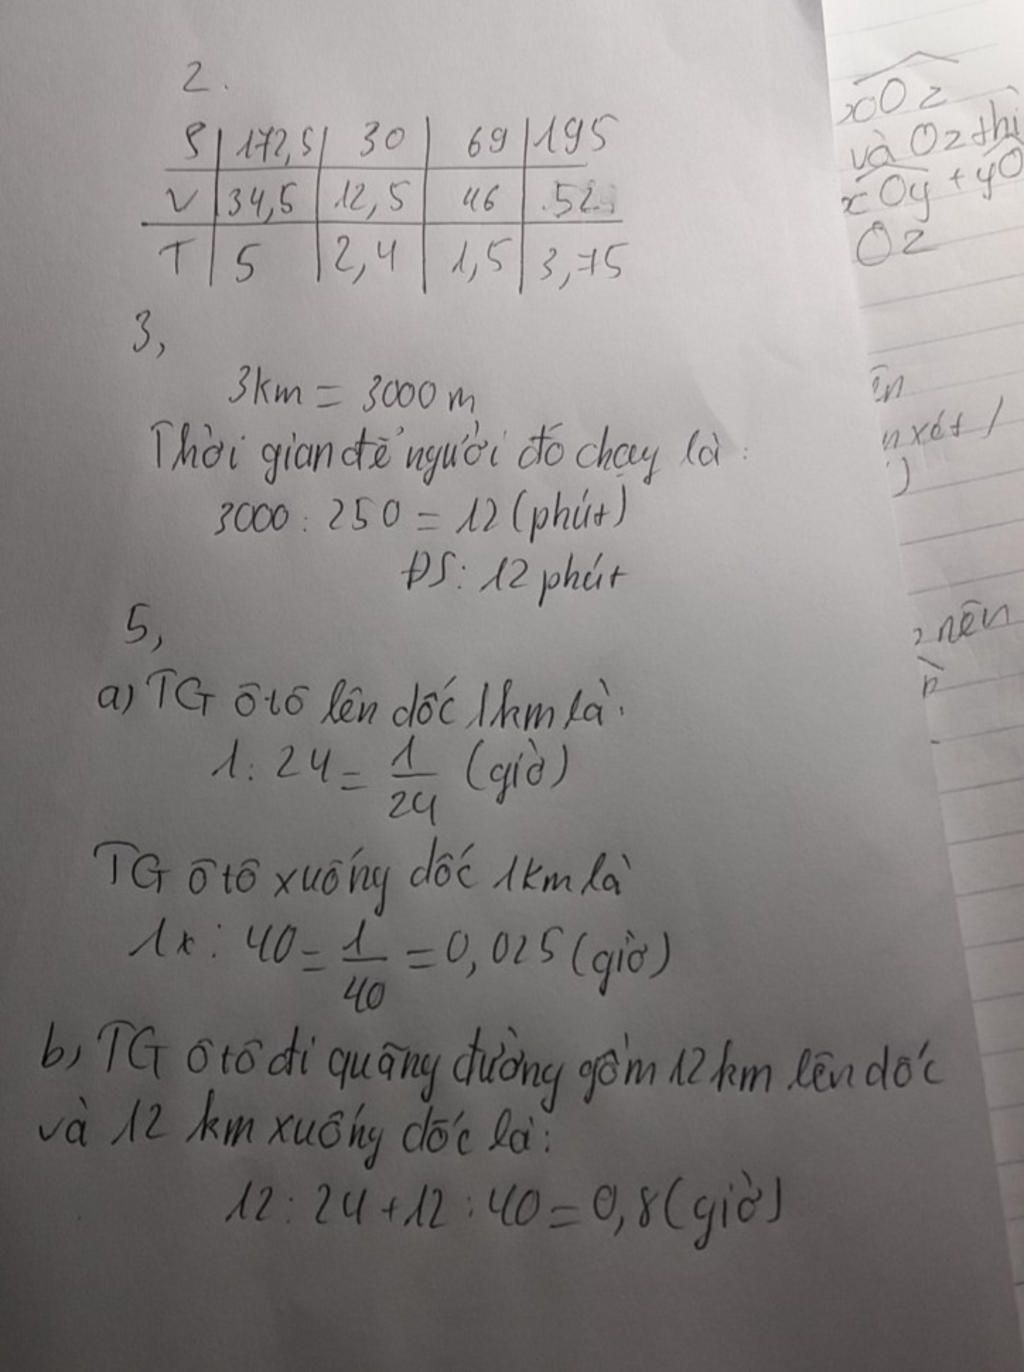 2.
S 172,5 30 69 195
V 34,5 12,5 46 52
T 5 2,4 1,5 3,75
3,
3km = 3000 m
Thời gian để người đó chạy là:
3000 : 250 = 12 (phút)
ĐS: 12 phút
5,
a) TG ôtô lên dốc 1km là:
1 : 24 = 1/24 (giờ)
TG ôtô xuống dốc 1km là
1 : 40 = 1/40 = 0,025 (giờ)
b, TG ôtô đi quãng đường gồm 12 km lên dốc
và 12 km xuống dốc là:
12 : 24 + 12 : 40 = 0,8 (giờ)
xOz
và Oz thì
xOy + yO
Oz
n xét /
nên